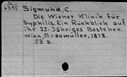 Sigmund, C
Die Wiener Klinik für
Syphilis. Ein Rückblick auf
ihr 25-Jähriges Bestehen.
Wien, Braumüller, 1878.
58 s.